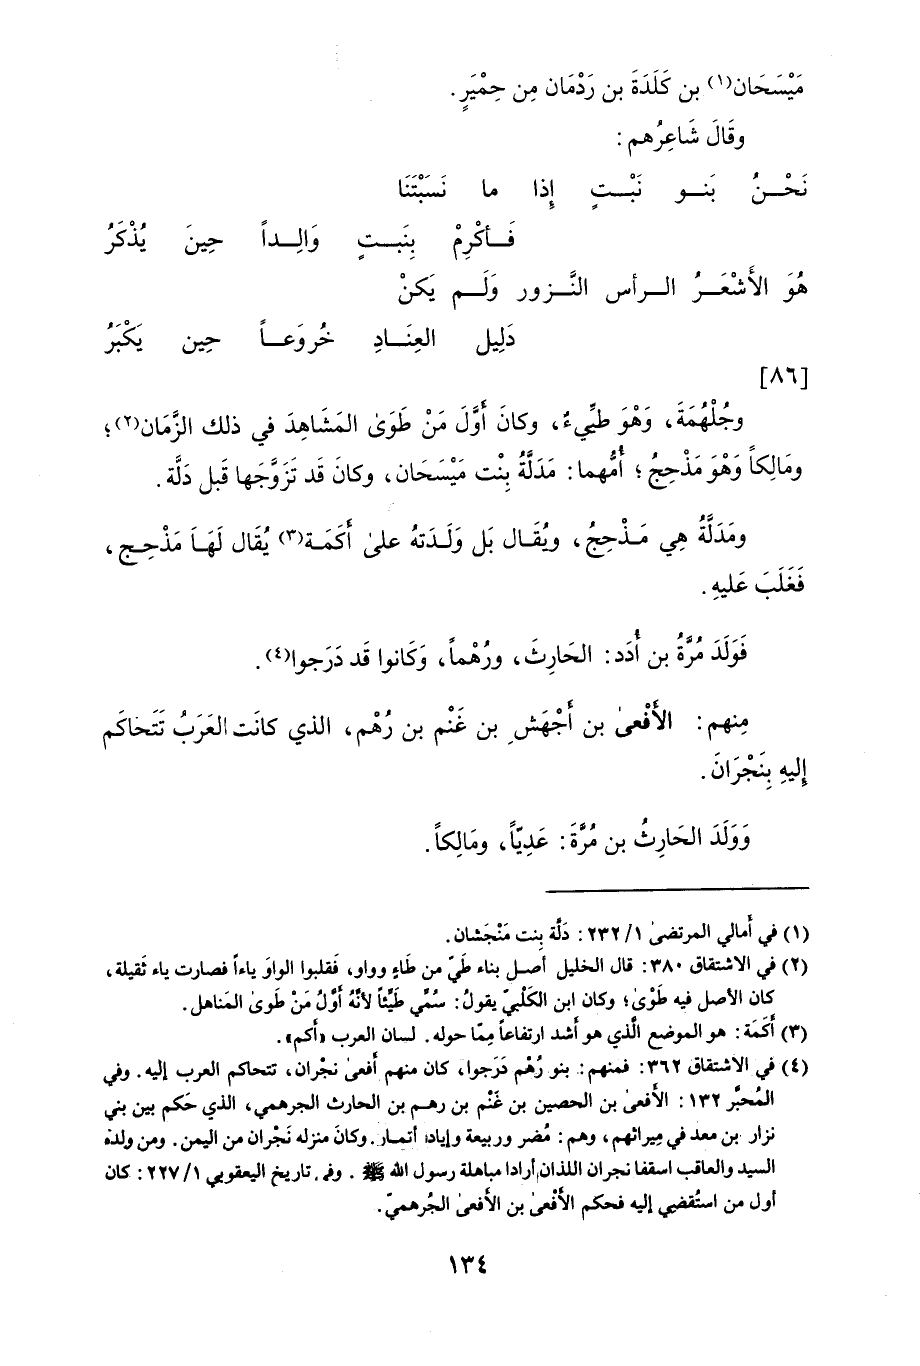 مَيْسَحَان(١) بن كَلَدَةَ بن رَدْمَان مِن حِمْيَرٍ.
وقَالَ شَاعِرُهم:
نَحْنُ بَنو نَبْتٍ إِذا ما نَسَبْتَنَا
فَأَكْرِمْ بِنَبتٍ وَالِداً حِينَ يُذْكَرُ
هُوَ الأَشْعَرُ الرأس النَّزور وَلَم يَكنْ
دَلِيل العِنَادِ خُروَعاً حِين يَكْبَرُ
[٨٦]
وجُلْهُمَةَ، وَهْوَ طيِّىءٌ، وكانَ أَوَّلَ مَنْ طَوَىٰ المَشَاهِدَ في ذلك الزَّمَان(٢)؛
ومَالِكاً وَهْوَ مَذْحِجُ؛ أُمُّهما: مَدَلَّةُ بِنْت مَيْسَحَان، وكانَ قَد تَزَوَّجَها قَبل دَلَّة.
ومَدَلَّةُ هِي مَذْحِجُ، ويُقَال بَل وَلَدَتهُ علىٰ أَكَمَة(٣) يُقَال لَهَا مَذْحِج،
فَغَلَبَ عَليهِ.
فَوَلَدَ مُرَّةُ بن أُدَد: الحَارِثَ، ورُهْماً، وَكَانوا قَد دَرَجوا(٤).
مِنهم: الأَفْعىٰ بن أَجْهَشِ بن غَنْم بن رُهْم، الذي كانَت العَرَبُ تَتَحاكَم
إِليهِ بِنَجْرَانَ.
وَوَلَدَ الحَارِثُ بن مُرَّةَ: عَدِيّاً، ومَالِكاً.
(١) في أَمالي المرتضىٰ ٢٣٢/١: دَلَّة بِنت مَنْجَشان.
(٢) في الاشتقاق ٣٨٠: قال الخليل أصل بناء طَيّ من طَاءٍ وواو، فَقلبوا الواوَ ياءاً فصارت ياء ثَقيلة،
كان الأصل فيه طَوْىٰ؛ وكان ابن الكَلْبيّ يقولُ: سُمِّي طَيِّئاً لأنَّهُ أَوَّلُ مَنْ طَوىٰ المَناهل.
(٣) أَكَمَة: هو الموضع الَّذي هو أَشد ارتفاعاً مِمّا حوله. لسان العرب «أكم».
(٤) في الاشتقاق ٣٦٢: فمنهم: بنو رُهْم دَرَجوا، كان منهم أَفعىٰ نجْران، تتحاكم العرب إليه. وفي
المُحبَّر ١٣٢: الأَفعىٰ بن الحصين بن غَنْم بن رهم بن الحارث الجرهمي، الذي حَكم بين بني
نزار بن معد في مِيراثهم، وهم: مُضر وربيعة وإياد وأتمار. وكانَ منزله نَجْران من اليمن. ومن ولده
السيد والعاقب اسقفا نجران اللذان أرادا مباهلة رسول الله ﷺ. وفي تاريخ اليعقوبي ٢٢٧/١: كان
أول من استُقضي إليه فحكم الأَفْعىٰ بن الأَفعىٰ الجُرهميّ.
١٣٤